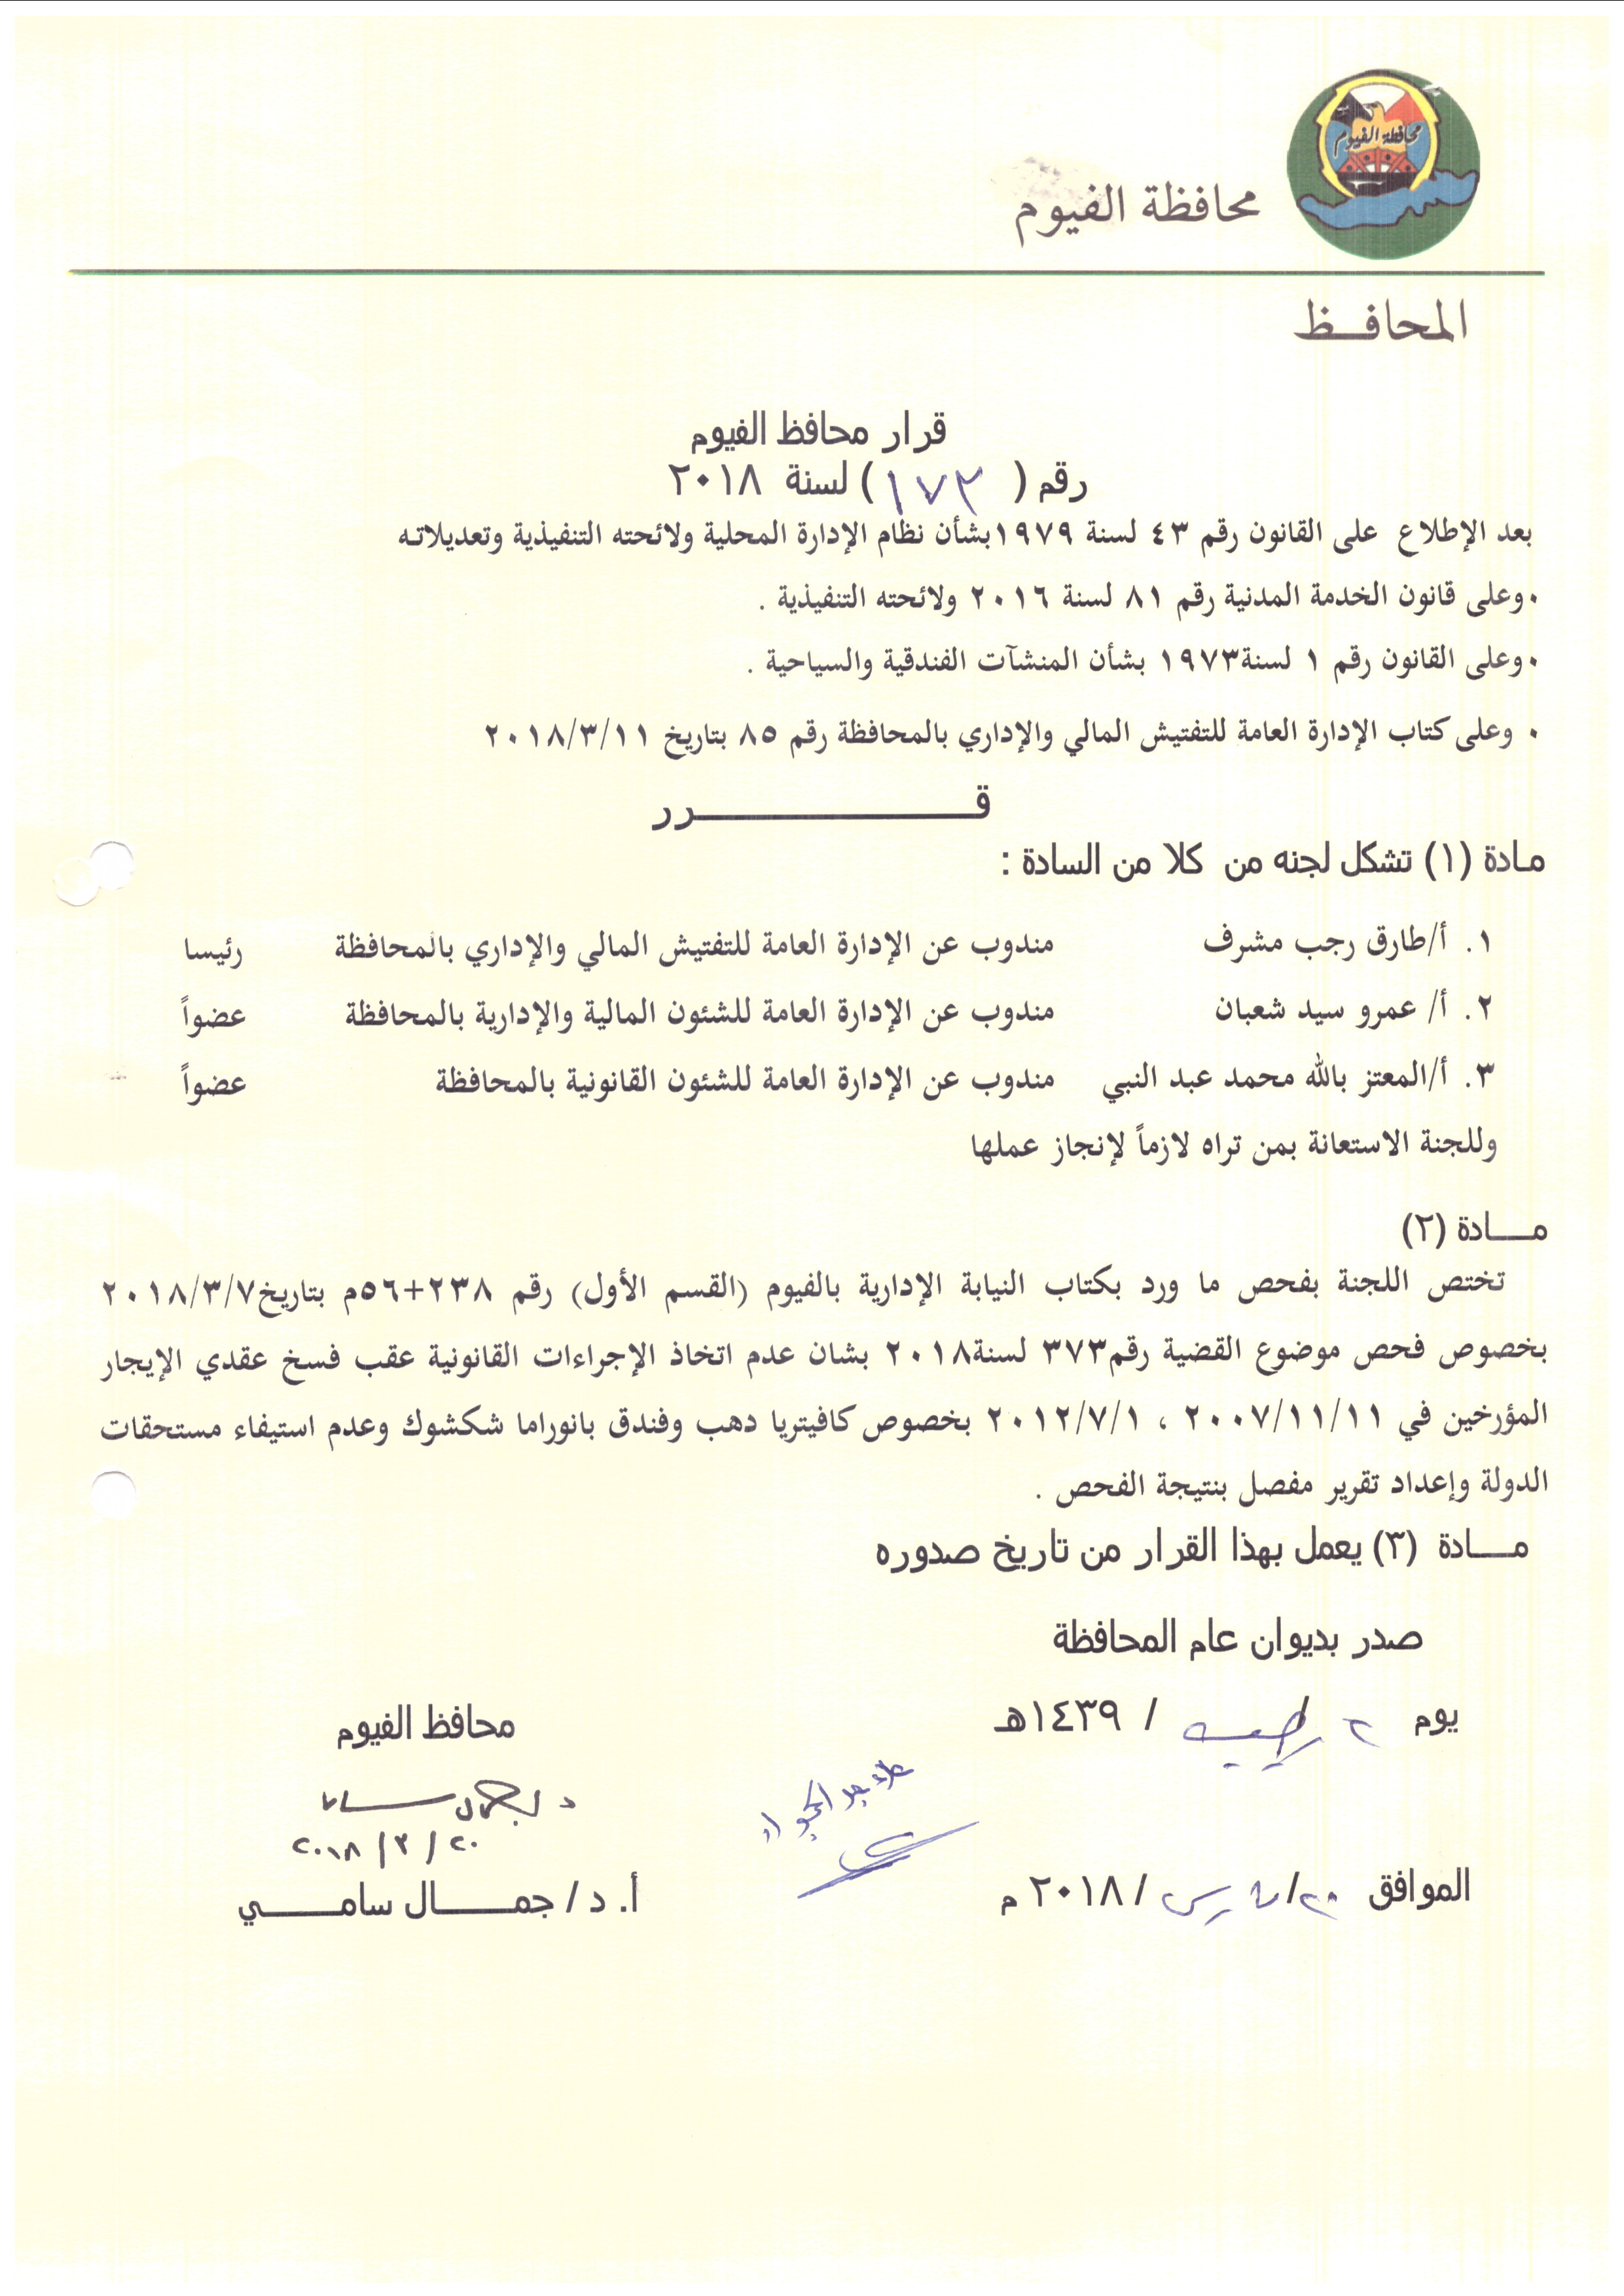 محافظة الفيوم
محافظة الفيوم
المحافـــظ
قرار محافظ الفيوم
رقم ( ١٧٣ ) لسنة ٢٠١٨
بعد الإطلاع على القانون رقم ٤٣ لسنة ١٩٧٩بشأن نظام الإدارة المحلية ولائحته التنفيذية وتعديلاته
• وعلى قانون الخدمة المدنية رقم ٨١ لسنة ٢٠١٦ ولائحته التنفيذية .
• وعلى القانون رقم ١ لسنة١٩٧٣ بشأن المنشآت الفندقية والسياحية .
• وعلى كتاب الإدارة العامة للتفتيش المالي والإداري بالمحافظة رقم ٨٥ بتاريخ ٢٠١٨/٣/١١
قـــــــــــــــــرر
مادة (١) تشكل لجنه من كلا من السادة :
١. أ/طارق رجب مشرف مندوب عن الإدارة العامة للتفتيش المالي والإداري بالمحافظة رئيسا
٢. أ/ عمرو سيد شعبان مندوب عن الإدارة العامة للشئون المالية والإدارية بالمحافظة عضواً
٣. أ/المعتز بالله محمد عبد النبي مندوب عن الإدارة العامة للشئون القانونية بالمحافظة عضواً
وللجنة الاستعانة بمن تراه لازماً لإنجاز عملها
مــــادة (٢)
تختص اللجنة بفحص ما ورد بكتاب النيابة الإدارية بالفيوم (القسم الأول) رقم ٢٣٨+٥٦م بتاريخ٢٠١٨/٣/٧
بخصوص فحص موضوع القضية رقم٣٧٣ لسنة٢٠١٨ بشان عدم اتخاذ الإجراءات القانونية عقب فسخ عقدي الإيجار
المؤرخين في ٢٠٠٧/١١/١١ ، ٢٠١٢/٧/١ بخصوص كافيتريا دهب وفندق بانوراما شكشوك وعدم استيفاء مستحقات
الدولة وإعداد تقرير مفصل بنتيجة الفحص .
مــــادة (٣) يعمل بهذا القرار من تاريخ صدوره
صدر بديوان عام المحافظة
يوم ٢ / ١٤٣٩هـ
محافظ الفيوم
٢٠١٨/٣/٢٠
الموافق ٢٠/مارس/٢٠١٨ م
أ. د/ جمـــــال سامــــــي